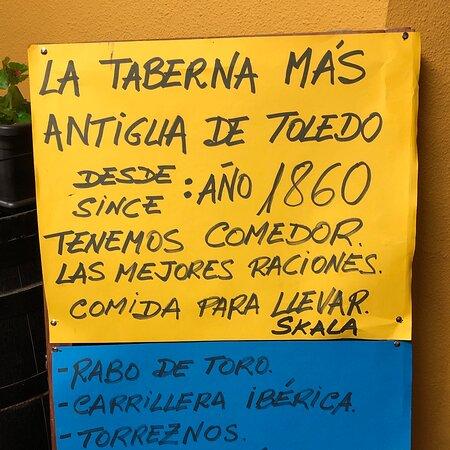 LA TABERNA MÁS
ANTIGUA DE TOLEDO
DESDE
SINCE : AÑO 1860
TENEMOS COMEDOR.
LAS MEJORES RACIONES.
COMIDA PARA LLEVAR.
SKALA
- RABO DE TORO.
- CARRILLERA IBÉRICA.
- TORREZNOS.